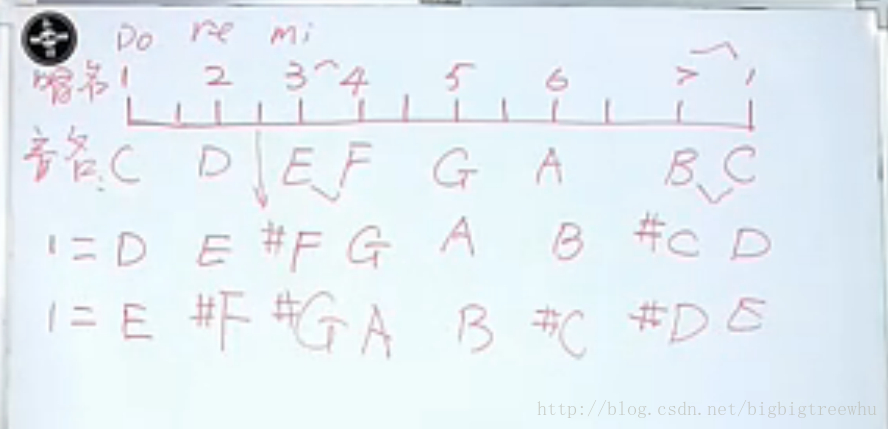 Do re mi
唱名 1 2 3 4 5 6 7 1
音名: C D E F G A B C
1 = D E #F G A B #C D
1 = E #F #G A B #C #D E
http://blog.csdn.net/bigbigtreewhu